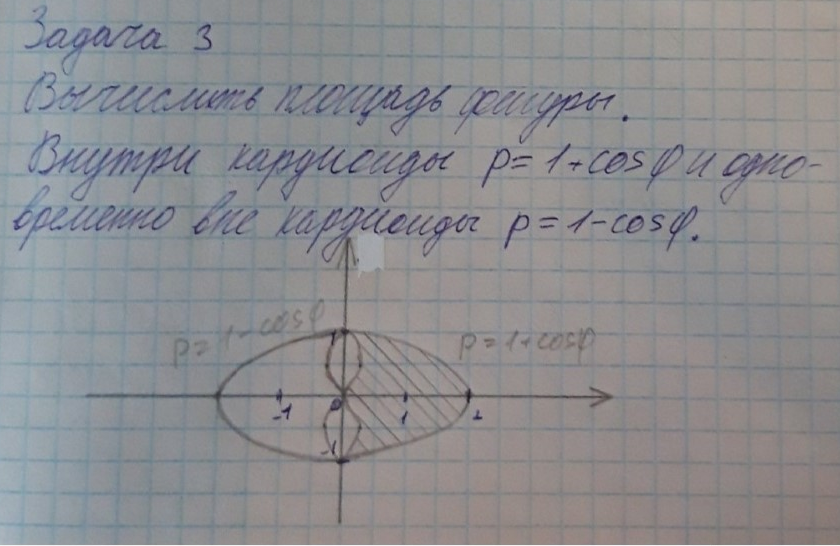 Задача 3
Вычислить площадь фигуры.
Внутри кардиоиды ρ=1+cosφ и одно-
временно вне кардиоиды ρ=1-cosφ.
ρ=1-cosφ
ρ=1+cosφ
1
-1 0 1 2
-1